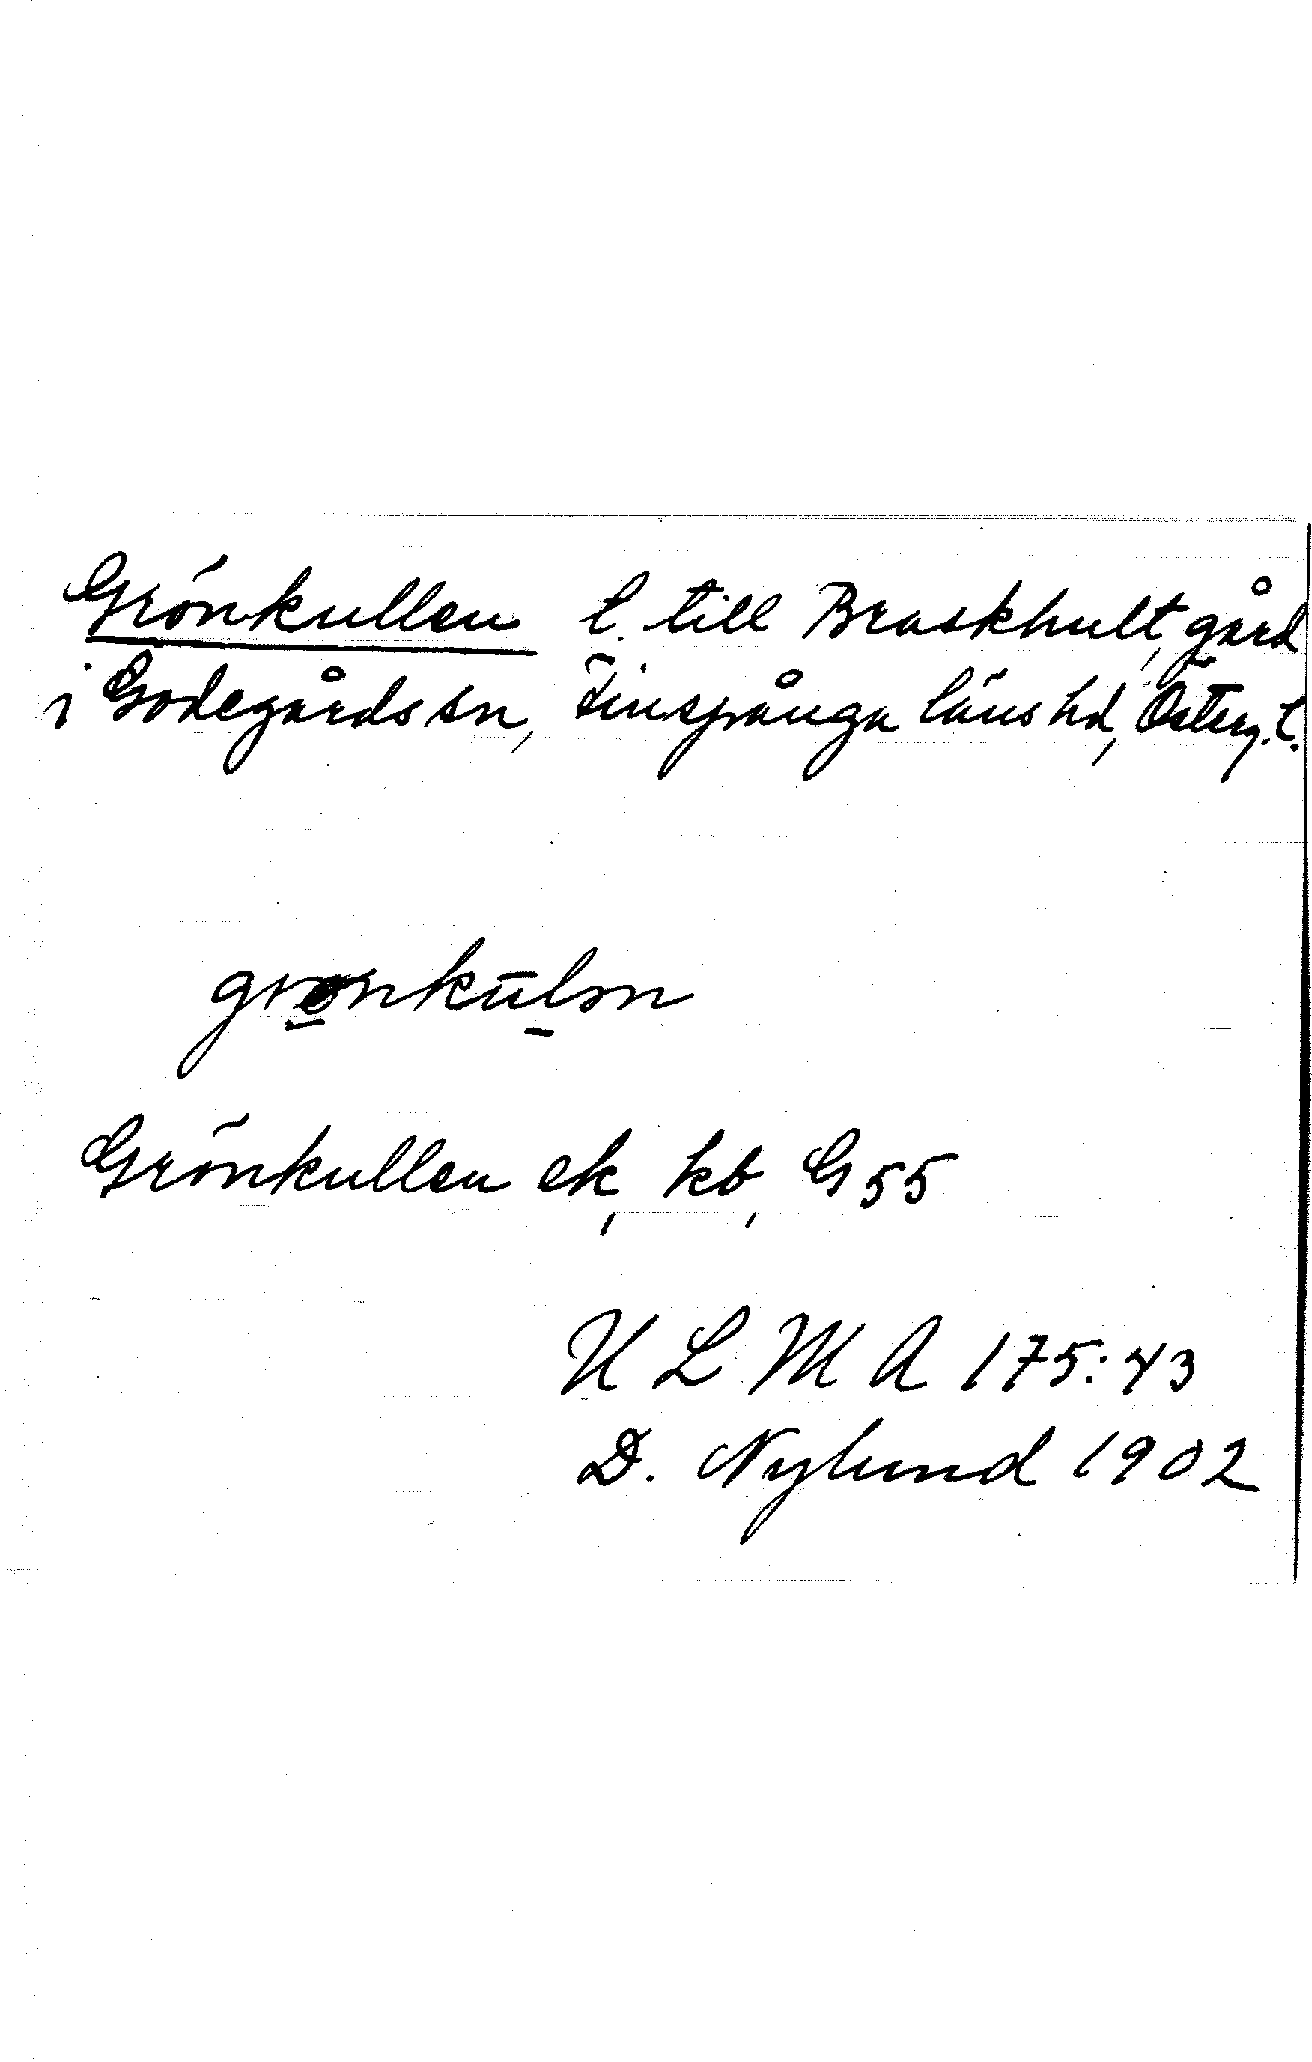 Grönkullen t. till Braskhult, gård
i Godegårds sn, Finspånga läns hd, Österg. l.
Grönkullen ek, kb, G 55
U L M A 175:43
D. Nylund 1902